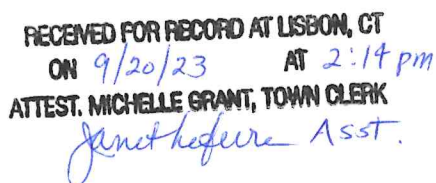 RECEIVED FOR RECORD AT LISBON, CT
ON 9/20/23 AT 2:14 pm
ATTEST. MICHELLE GRANT, TOWN CLERK
Janet Asst.